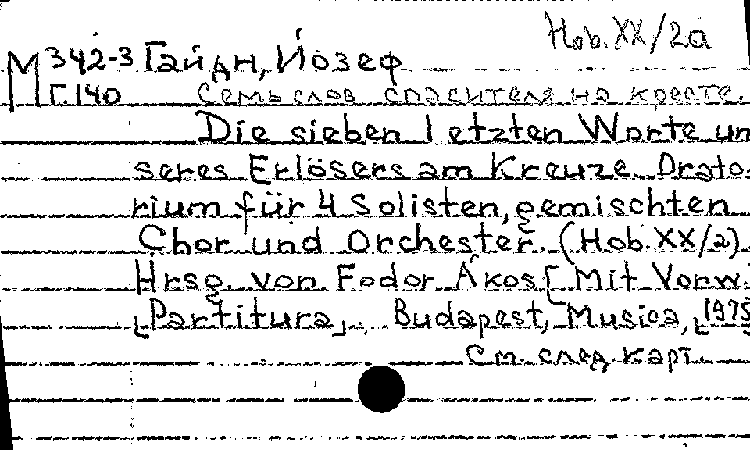 Hob. XX/2a
М 342-3 Гайдн, Йозеф
Г.140 Семь слов спасителя на кресте.
Die sieben letzten Worte un
seres Erlösers am Kreuze. Orato-
rium für 4 Solisten, gemischten
Chor und Orchester. (Hob. XX/2)
Hrsg. von Fodor Ákos[Mit Vorw.
[Partitura]. Budapest, Musica, [1975
См. след. карт.